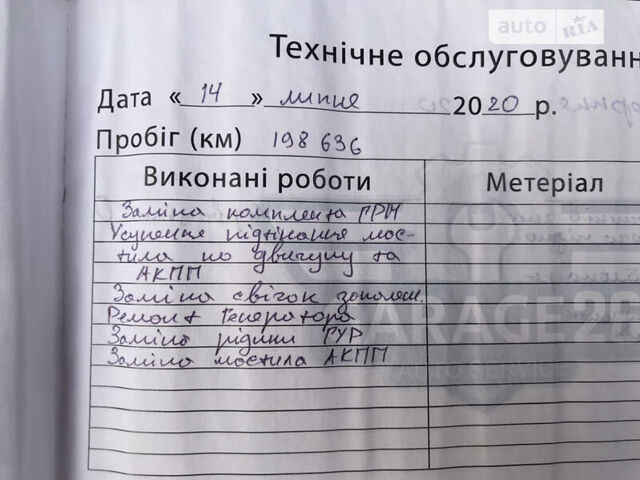 auto RIA
Технічне обслуговуванн
Дата « 14 » липня 2020 р.
Пробіг (км) 198 636
Виконані роботи Метеріал
Заміна комплекта ГРМ
Усунення підтікання мас-
тила по двигуну та
АКПП
Заміна свічок запален.
Ремонт Генератора
Заміна рідини ГУР
Заміна мастила АКПП
GARAGE 2